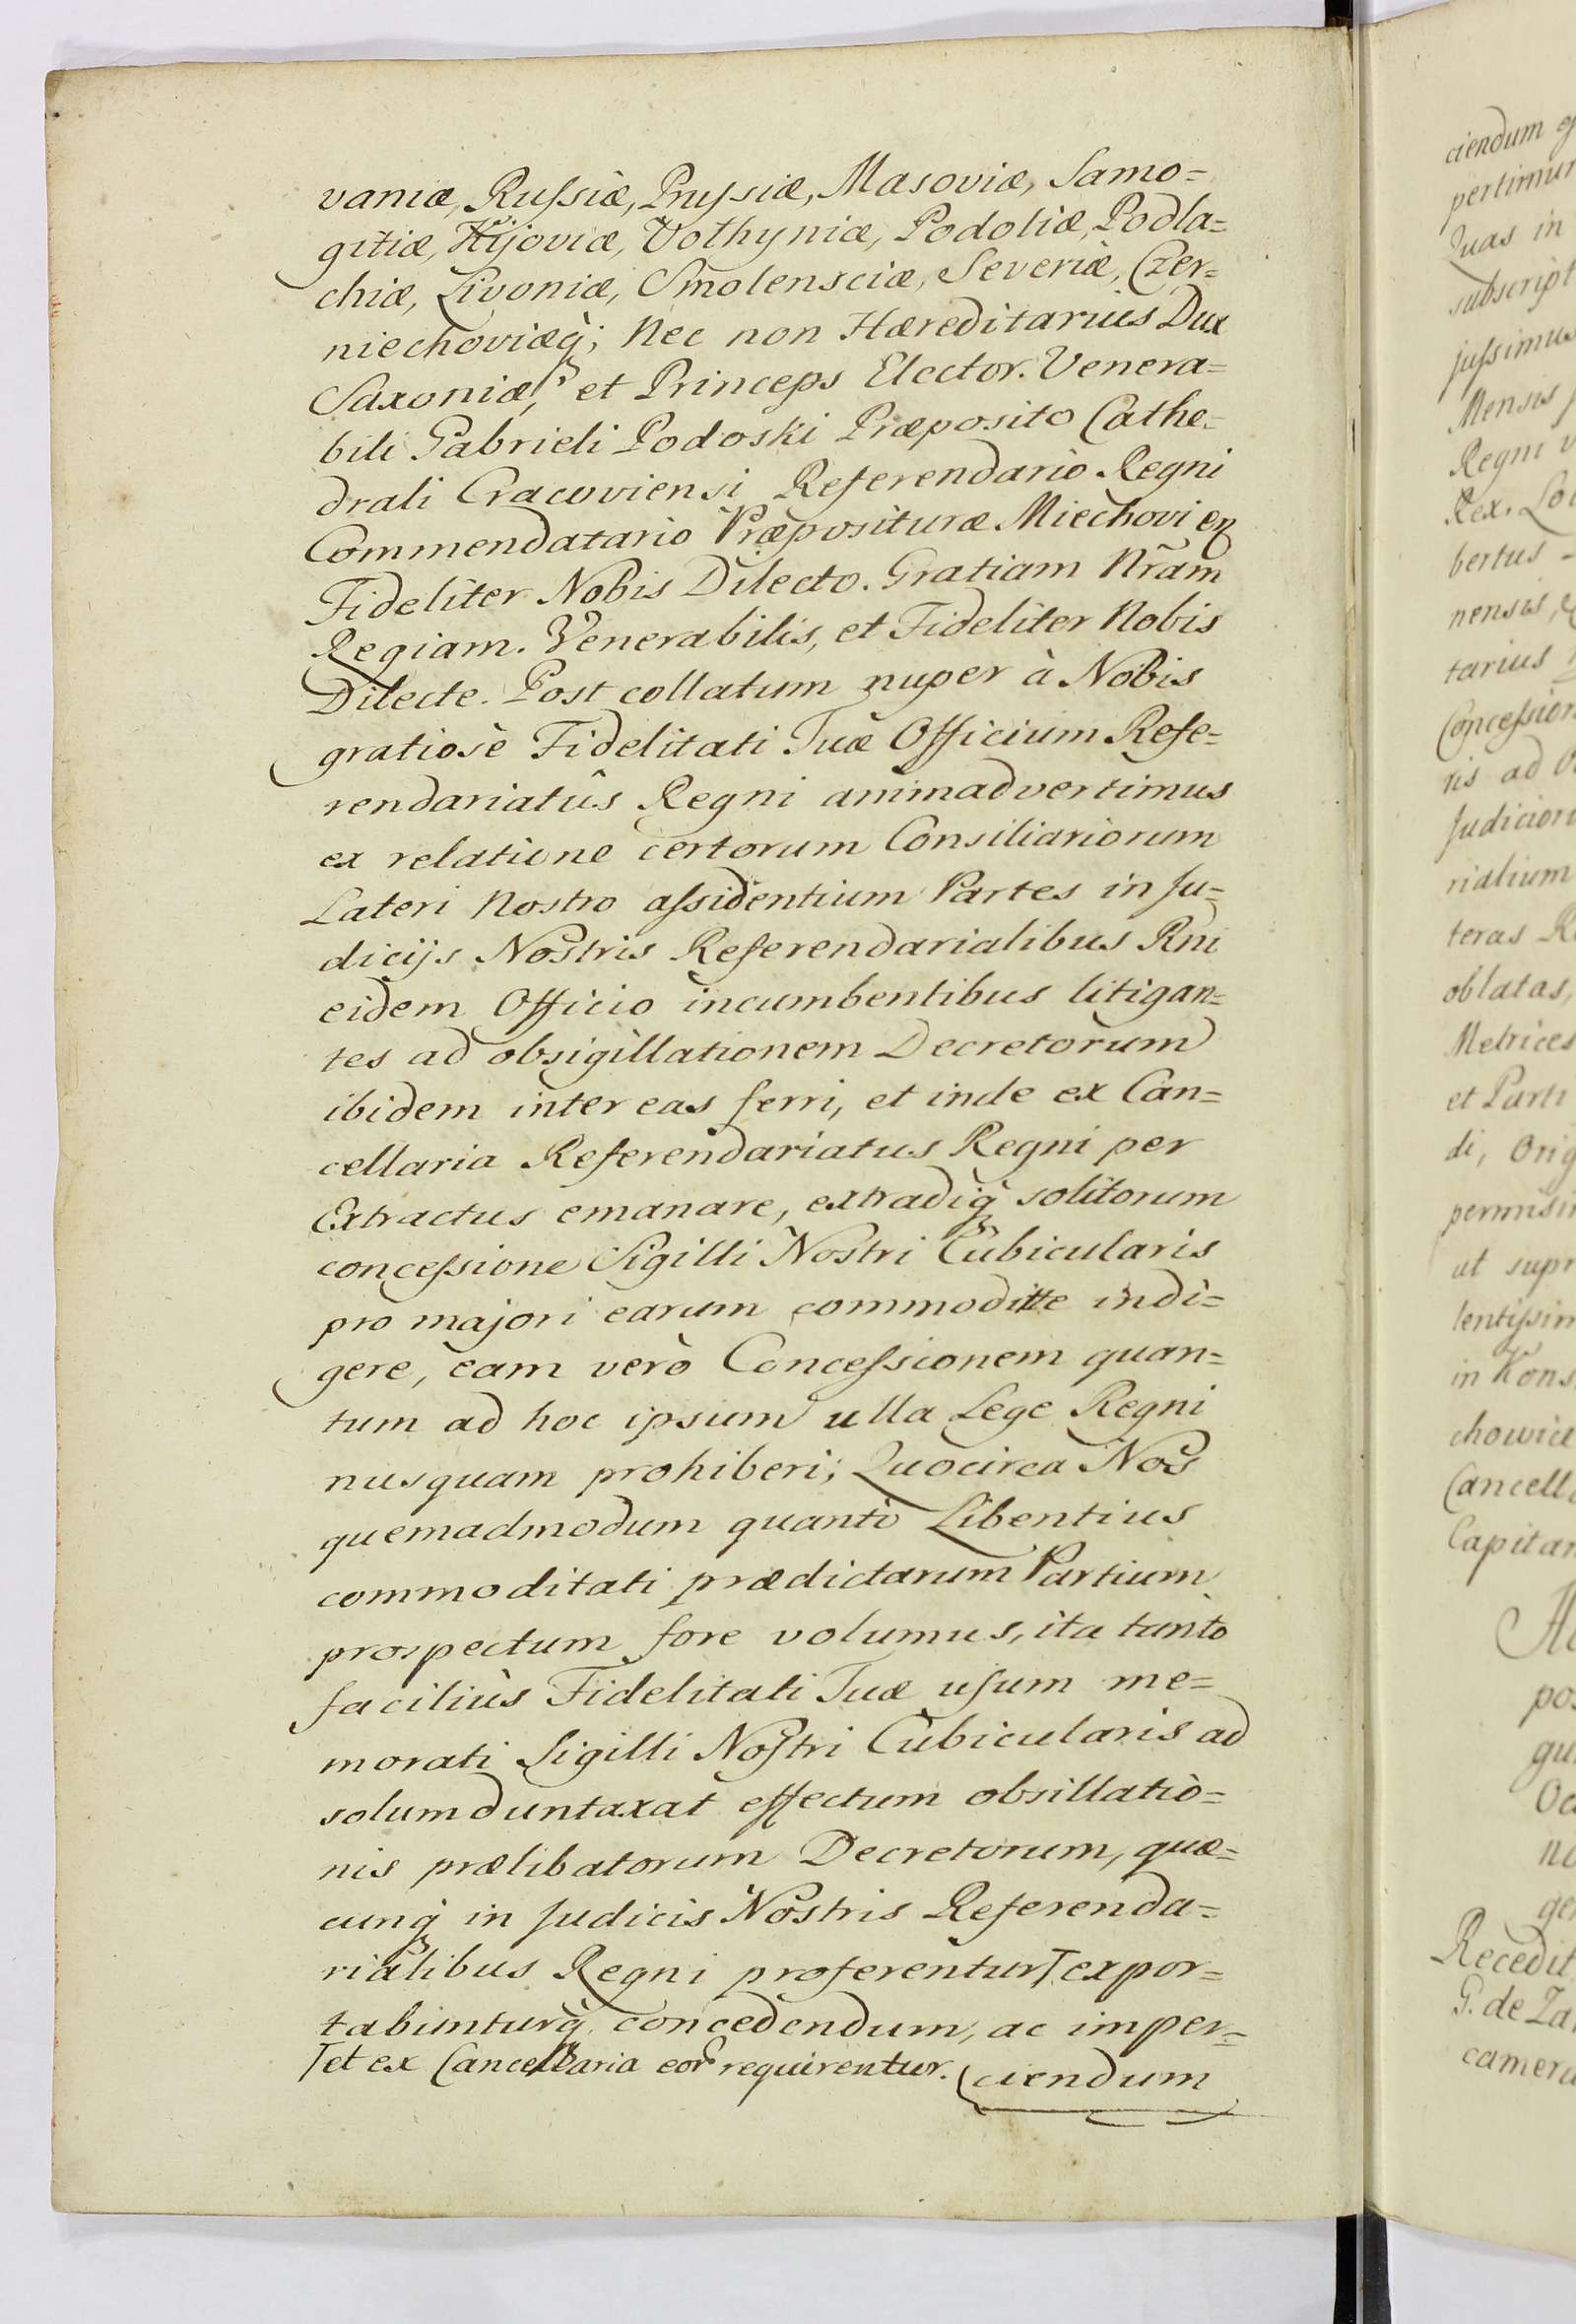 vaniæ, Rußiæ, Prussiæ, Masoviæ, Samo=
gitiæ, Kijoviæ, Volhyniæ, Podoliæ, Podla=
chiæ, Livoniæ, Smolensciæ, Severiæ, Czer=
niechoviæq; Nec non Hæreditarius Dux
Saxoniæ, et Princeps Elector. Venera=
bili Gabrieli Podoski Præposito Cathe=
drali Cracoviensi Referendario Regni
Commendatario Præposituræ Miechovien
Fideliter Nobis Dilecto. Gratiam Nr̃am
Regiam. Venerabilis, et Fideliter Nobis
Dilecte. Post collatum nuper à Nobis
gratiosè Fidelitati Tuæ Officium Refe=
rendariatûs Regni animadvertimus
ex relatione certorum Consiliariorum
Lateri Nostro aßidentium Partes in Ju=
dicijs Nostris Referendarialibus Rni
eidem Officio incumbentibus litigan=
tes ad obsigillationem Decretorum
ibidem inter eas ferri, et inde ex Can=
cellaria Referendariatus Regni per
Extractus emanare, extradiq solitorum
conceßione Sigilli Nostri Cubicularis
pro majori earum commoditte indi=
gere, eam verò Conceßionem quan=
tum ad hoc ipsum ulla Lege Regni
nusquam prohiberi; Quocirca Nos
quemadmodum quantò Libentius
commoditati prædictarum Partium
prospectum fore volumus, ita tantò
faciliùs Fidelitati Tuæ usum me=
morati Sigilli Nostri Cubicularis ad
solum duntaxat effectum obsillatio=
nis prælibatorum Decretorum, quæ=
cunq in Judicis Nostris Referenda=
rialibus Regni proferentur ⌈ expor=
tabunturq concedendum, ac imper=
⌈ et ex Cancellaria eor requirentur. ciendum
ciendum
Quas in
subscript
jußimus
Mensis
Regni
Rex.
bertus
nensis,
tarius
Conceßion
ris ad
Judicior
rialium
teras
oblatas,
Metrices
et Parti
di, Orig
permisi
ut supr
lentißim
in Kons
Cancell
Capitan
Recedit
G. de Za
camera